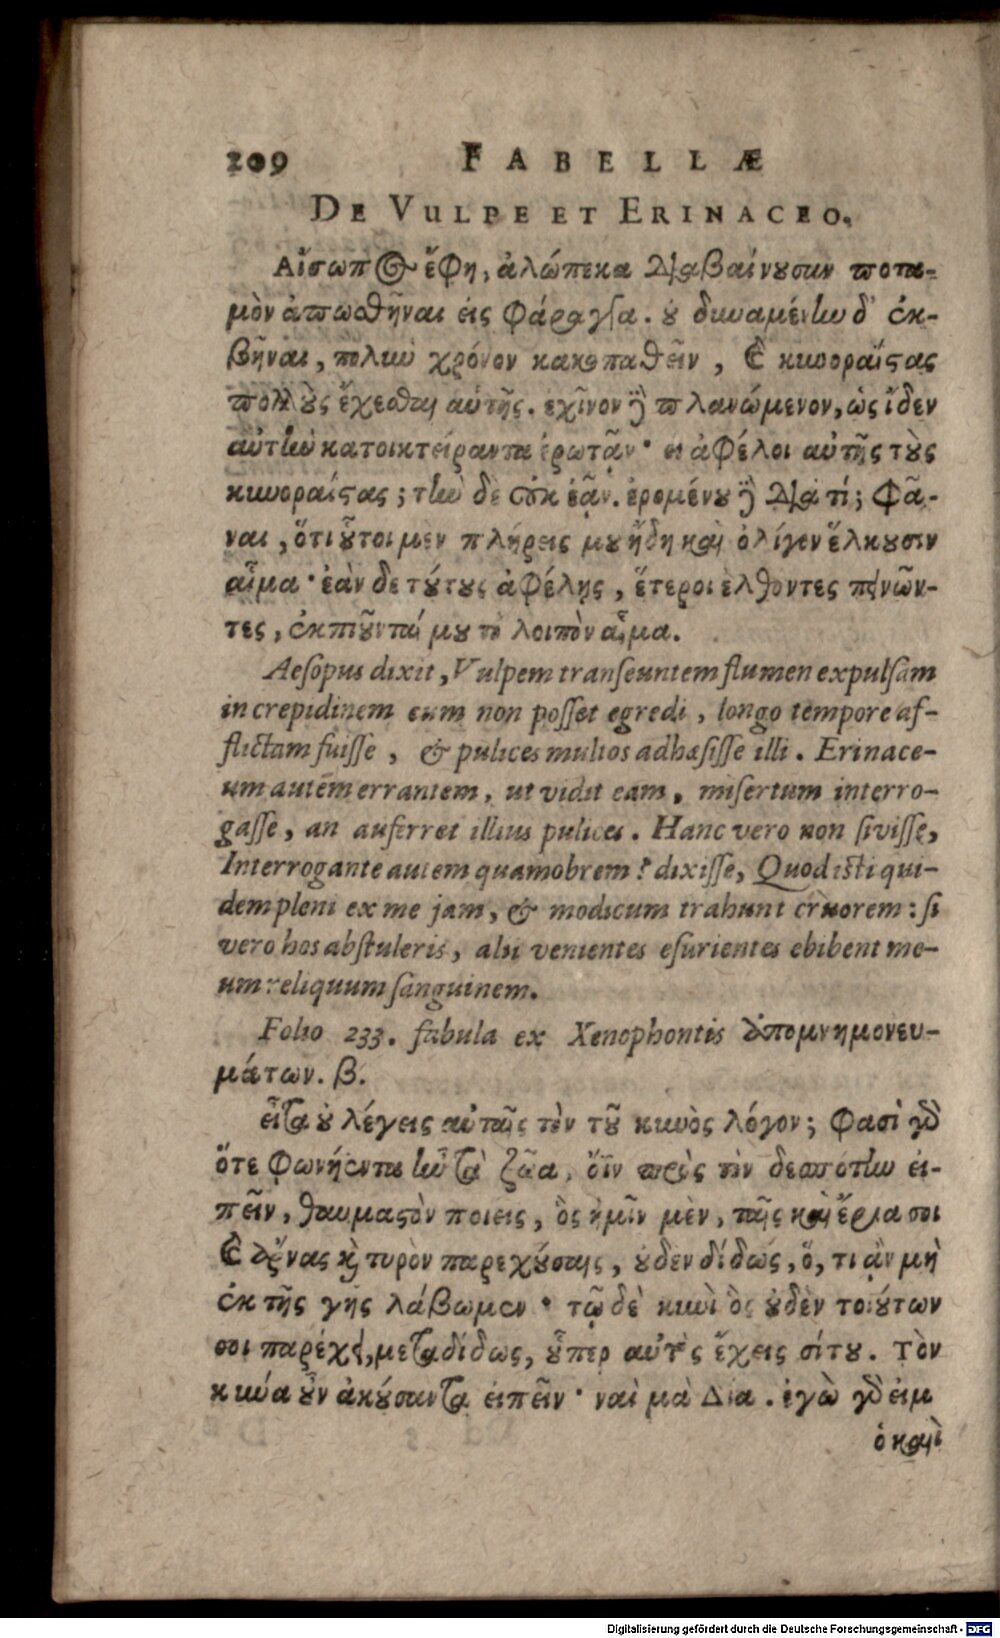 209 FABELLÆ
DE VULPE ET ERINACEO.
Αἴσωπος ἔφη, ἀλώπεκα διαβαίνουσαν ποτα-
μὸν ἀπωσθῆναι εἰς φάραγγα. οὐ δυναμένην δ' ἐκ-
βῆναι, πολὺν χρόνον κακοπαθεῖν, καὶ κυνοραϊστὰς
πολλοὺς ἔχεσθαι αὐτῆς. ἐχῖνον δὲ πλανώμενον, ὡς ἶδεν
αὐτὴν κατοικτείραντα ἐρωτᾶν· ει ἀφέλοι αὐτῆς τοὺς
κυνοραϊστας; τὴν δὲ οὐκ ἐᾶν. ἐρομένου δὲ διὰ τί; φᾶ-
ναι, ὅτι οὗτοι μὲν πλήρεις μου ἤδη καὶ ὀλίγον ἕλκουσιν
αἷμα· ἐὰν δε τούτους ἀφέλης, ἕτεροι ἐλθοντες πεινῶν-
τες, ἐκπιοῦνταί μου τὸ λοιπὸν αἷμα.
Aesopus dixit, Vulpem transeuntem flumen expulsam
in crepidinem cum non posset egredi, longo tempore af-
flictam fuisse, & pulices multos adhæsisse illi. Erinace-
um autem errantem, ut vidit eam, misertum interro-
gasse, an auferret illius pulices. Hanc vero non sivisse,
Interrogante autem quamobrem? dixisse, Quod isti qui-
dem pleni ex me jam, & modicum trahunt cruorem: si
vero hos abstuleris, alii venientes esurientes ebibent me-
um reliquum sanguinem.
Folio 233. fabula ex Xenophontis ἀπομνημονευ-
μάτων. β.
εἶτα οὐ λέγεις αὐταῖς τὸν τοῦ κυνὸς λόγον; φασὶ γὰρ
ὅτε φωνήεντα ἦν τὰ ζῶα, ὄϊν πρὸς τὸν δεσπότην εἰ-
πεῖν, θαυμαστὸν ποιεις, ὃς ἡμῖν μὲν, ταῖς καὶ ἔρια σοι
καὶ ἄρνας καὶ τυρὸν παρεχούσαις, οὐδεν δίδως, ὅ, τι ἂν μὴ
ἐκ τῆς γῆς λάβωμεν· τῷ δὲ κυνὶ ὃς οὐδὲν τοιούτων
σοι παρέχει, μεταδίδως, οὗπερ αὐτὸς ἔχεις σίτου. Τὸν
κύνα οὖν ἀκούσαντα εἰπεῖν· ναὶ μὰ Δία. ἐγὼ γὰρ εἰμ
ὁ καὶ
Digitalisierung gefördert durch die Deutsche Forschungsgemeinschaft - DFG